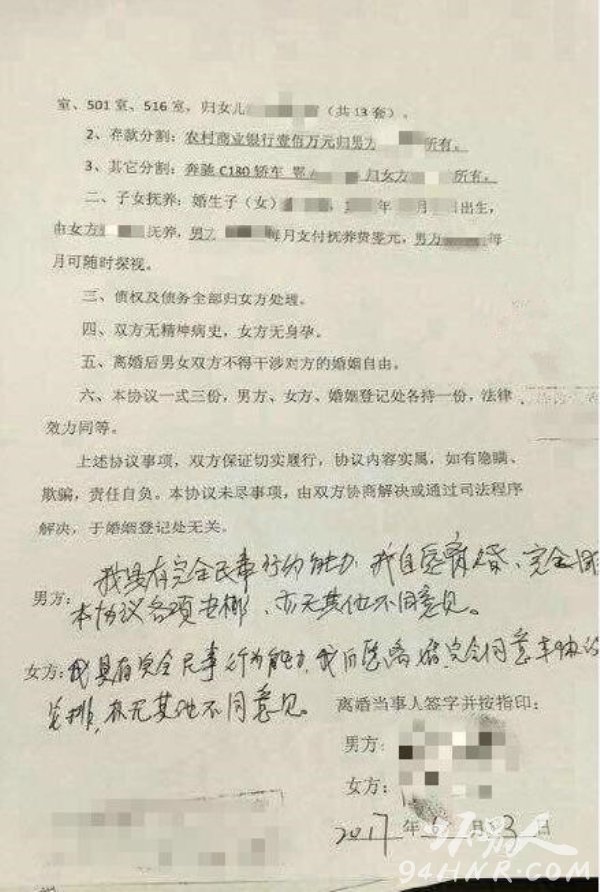 室、501 室、516 室，归女儿（共 13 套）。
2、存款分割：农村商业银行壹佰万元归男方所有。
3、其它分割：奔驰 C180 轿车 鄂归女方所有。
二、子女抚养：婚生子（女）年月日出生，
由女方抚养，男方每月支付抚养费零元，男方每
月可随时探视。
三、债权及债务全部归女方处理。
四、双方无精神病史，女方无身孕。
五、离婚后男女双方不得干涉对方的婚姻自由。
六、本协议一式三份，男方、女方、婚姻登记处各持一份，法律
效力同等。
上述协议事项，双方保证切实履行，协议内容实属，如有隐瞒、
欺骗，责任自负。本协议未尽事项，由双方协商解决或通过司法程序
解决，于婚姻登记处无关。
男方：我具有完全民事行为能力，我自愿离婚、完全同
本协议各项安排，亦无其他不同意见。
女方：我具有完全民事行为能力，我自愿离婚完全同意本协议
安排，亦无其他不同意见。
离婚当事人签字并按指印：
男方：
女方：
2017年月3日
坏男人
94HNR.COM